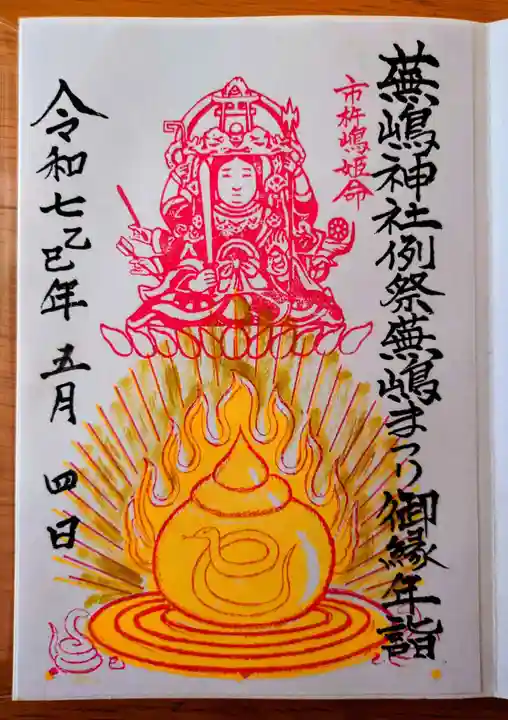 蕪嶋神社例祭蕪嶋まつり御縁年詣
市杵嶋姫命
令和七乙巳年五月四日